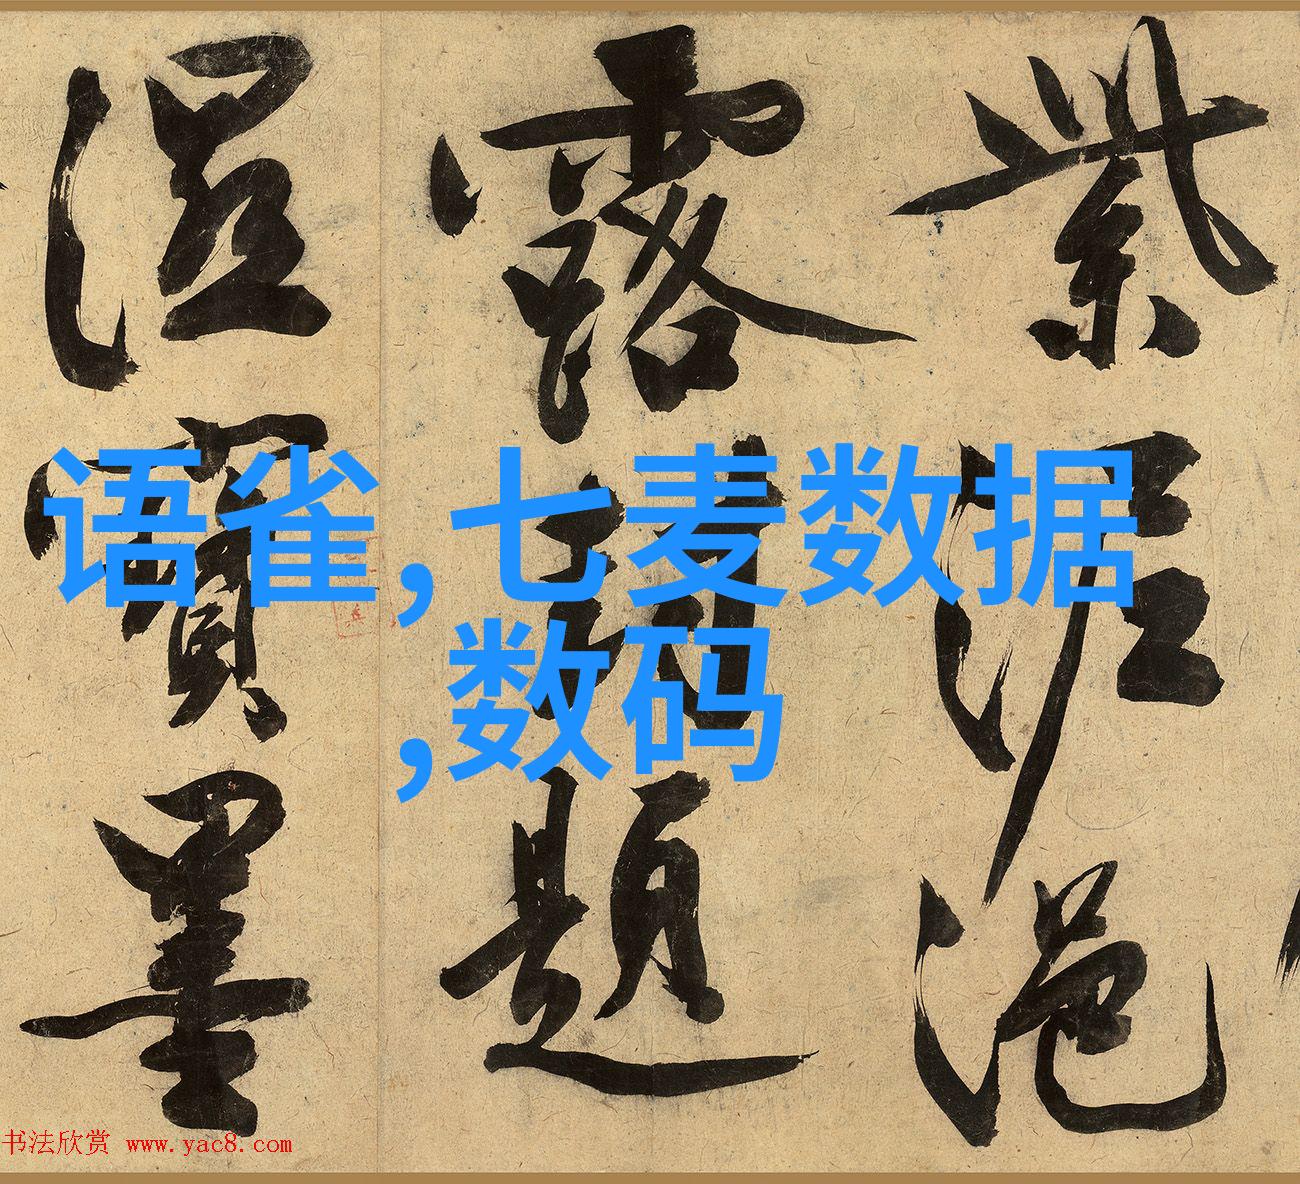 紫泥浥
露題
溼寶墨
语雀,七麦数据
,数码
书法欣赏 www.yac8.com